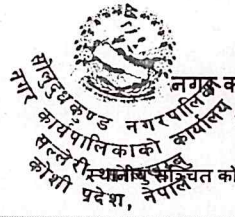 सोलुदुधकुण्ड नगरपालिका
नगर कार्यपालिकाको कार्यालय
सल्लेरी
कोशी प्रदेश, नेपाल
नगर क
स्थानीय सञ्चित को